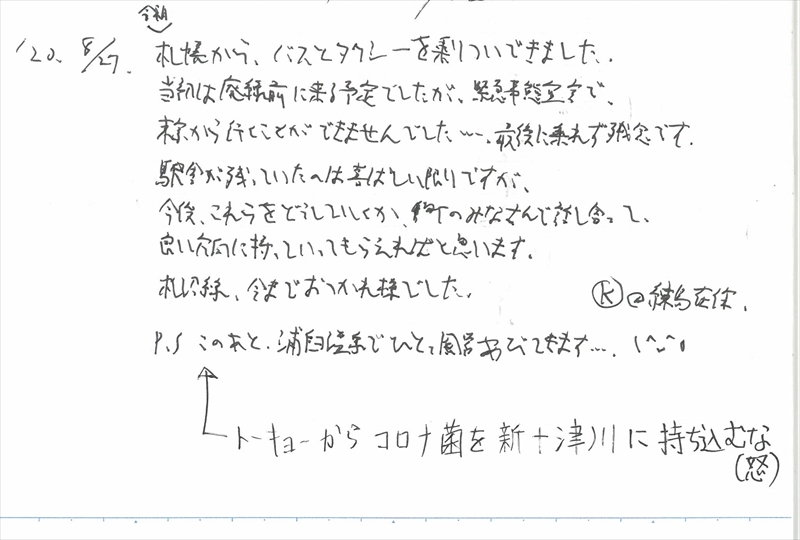 今朝
'20. 8/27. 札幌から、バスとタクシーを乗りついできました.
当初は廃線前に来る予定でしたが、緊急事態宣言で、
東京から行くことができませんでした…. 最後に乗れず残念です.
駅舎が残っていたのは喜ばしい限りですが、
今後、これらをどうしていくか、町のみなさんで話し合って、
良い方向に持っていってもらえればと思います.
札沼線、今までおつかれ様でした.
K @練馬在住.
P.S このあと、浦臼温泉でひとっ風呂あびてきます….(^_^)
トーキョーからコロナ菌を新十津川に持ち込むな
(怒)